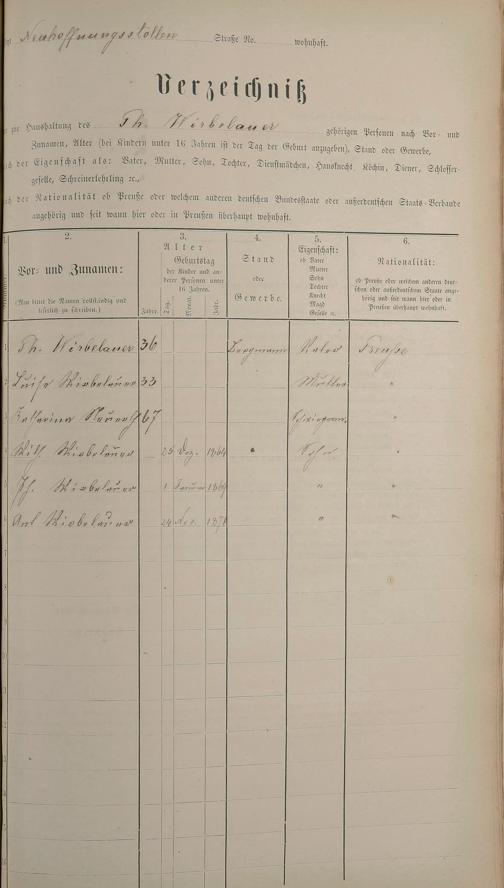 Neuhoffnungsstollen Straße No. wohnhaft.
Verzeichniß
zur Haushaltung des Th. Wirbelauer gehörigen Personen nach Vor- und
Zunamen, Alter (bei Kindern unter 16 Jahren ist der Tag der Geburt anzugeben), Stand oder Gewerbe,
der Eigenschaft als: Vater, Mutter, Sohn, Tochter, Dienstmädchen, Hausknecht, Köchin, Diener, Schlosser-
geselle, Schreinerlehrling ꝛc.
der Nationalität ob Preuße oder welchem anderen deutschen Bundesstaate oder außerdeutschen Staats-Verbande
angehörig und seit wann hier oder in Preußen überhaupt wohnhaft.
2. 3. 4. 5. 6.
Vor- und Zunamen:
(Man bittet die Namen vollständig und
leserlich zu schreiben.)
Alter
Jahre.
Geburtstag
der Kinder und an-
derer Personen unter
16 Jahren.
Tag. Monat. Jahr.
Stand
oder
Gewerbe.
Eigenschaft:
ob Vater
Mutter
Sohn
Tochter
Knecht
Magd
Geselle ꝛc.
Nationalität:
ob Preuße oder welchem andern deut-
schen oder außerdeutschen Staate ange-
hörig und seit wann hier oder in
Preußen überhaupt wohnhaft.
Th. Wirbelauer 36 Bergmann Vater Preuße
Luise Wirbelauer 33 Mutter "
Katharina 67 "
Wilh. Wirbelauer 25 Dez. 1864 " Sohn "
Jh. Wirbelauer 1 1869 " "
Ant Wirbelauer 24 1871 " "